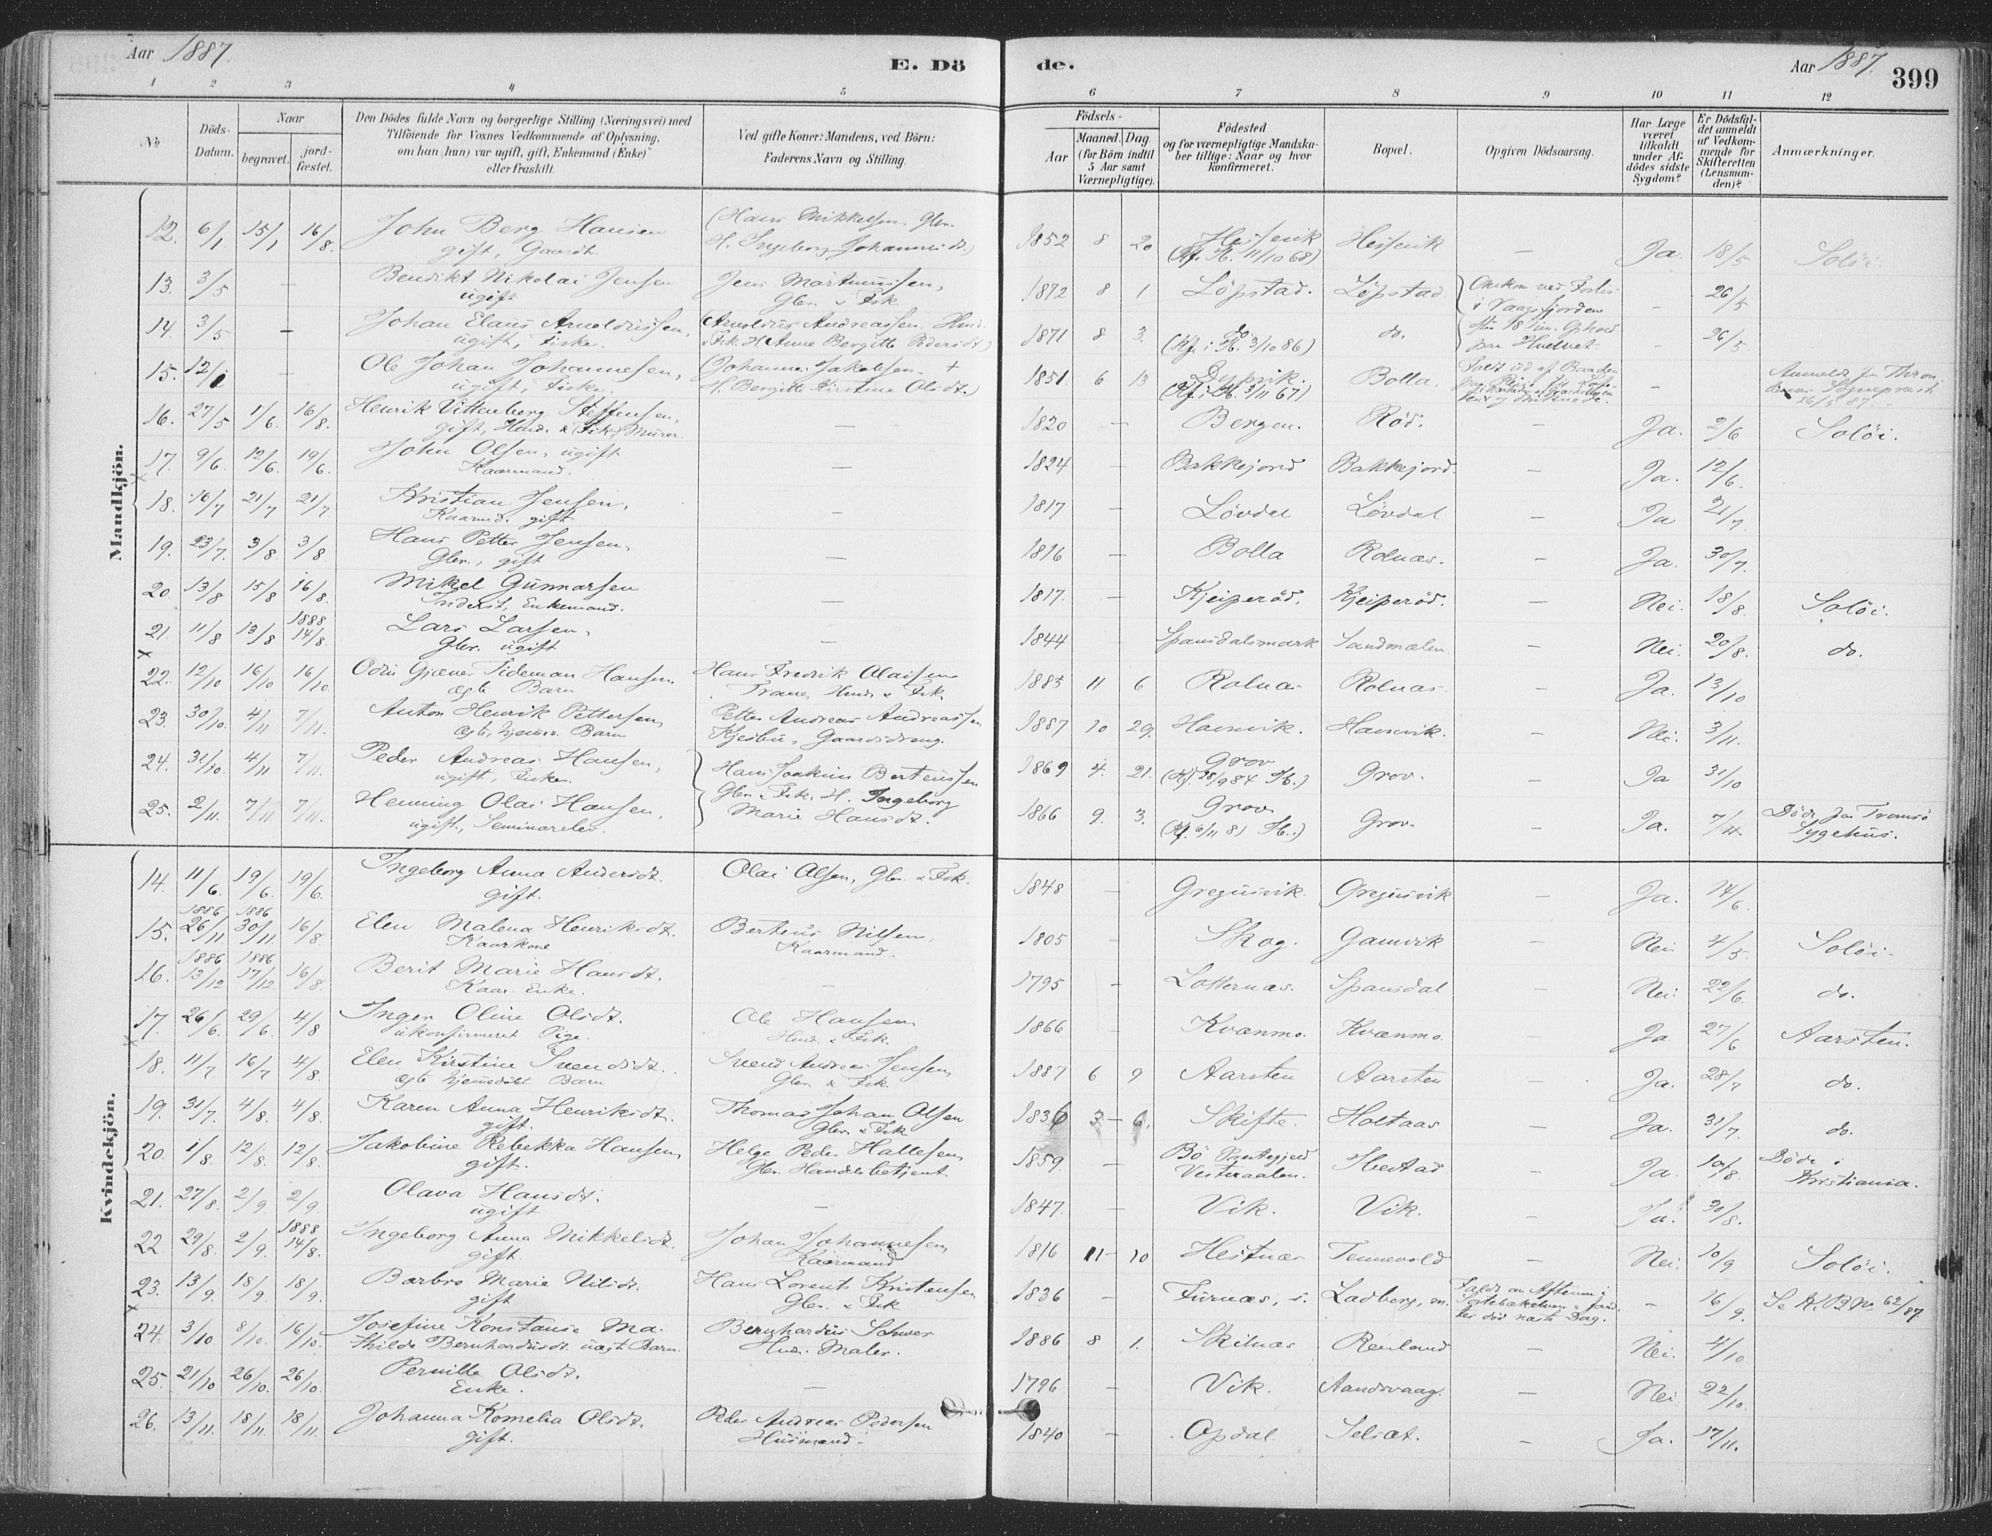 Aar 1887.
E. Dö
de.
Aar 1887.
399
1 2 3 4 5 6 7 8 9 10 11 12
No
Döds-Datum.
Naar
begravet.
jord-fæstet.
Den Dödes fulde Navn og borgerlige Stilling (Næringsvei) med
Tilföiende for Voxnes Vedkommende af Oplysning,
om han (hun) var ugift, gift, Enkemand (Enke)
eller fraskilt.
Ved gifte Koner: Mandens, ved Börn:
Faderens Navn og Stilling.
Födsels-
Aar
Maaned. Dag.
(for Börn indtil
5 Aar samt
Værnepligtige).
Födested
og for værnepligtige Mandska-
ber tillige: Naar og hvor
konfirmeret.
Bopæl.
Opgiven Dödsaarsag.
Har Læge
været
tilkaldt
under Af-
dödes sidste
Sygdom?
Er Dödsfal-
det anmeldt
af Vedkom-
mende for
Skifteretten
(Lensman-
den)?
Anmærkninger.
Mandkjön.
12. 6/1 15/1 16/8. John Berg Hansen (Hans Mikkelsen, Gbr. 1852 8 20 Hessevik Hessevik — Ja. 18/5 Solöi.
gift, Gaardt. H. Ingeborg Johannesdt.) (Kf. Ib. 11/10 68)
13. 3/5 — Bendikt Nikolai Jensen Jens Martinussen, 1872 8 1 Löpstad. Löpstad Omkom ved Forlis — 26/5
ugift Gbr. & Fisk. i Vaagsfjorden
14. 3/5 — Johan Elaus Arnoldussen, (Arnoldus Andreassen, Husm. 1871 8 3. do do. — 26/5
ugift, Fisker. & Fisk. H. Anne Bergitte Pedersdt.) (Kf. i Ib. 3/10 86) paa Hvelvet
15. 12/1 — Ole Johan Johannesen, (Johannes Jakobsen + 1851. 6 13 Dyrvik. Bolla. — Anmeldt fra Thron
ugift, Fisker. H. Bergitte Kirstine Olsdt.) (Kf. i Ib. 3/11 67) 26/5 87.
16. 27/5 1/6. 16/8. Henrik Vittenberg Steffensen, — 1820 — Bergen. Röd. Ja. 2/6 Solöi.
gift, Husm. & (Fisk) Murer.
17. 9/6. 12/6. 19/6. John Olsen, ugift — 1824 — Bakkejord Bakkejord — Ja. 12/6.
Kaarmand.
18. 16/7 21/7 21/7 Kristian Jensen, — 1817 — Lövdal Lövdal — Ja 21/7.
Kaarmd. gift
19. 23/7. 3/8 3/8 Hans Petter Jensen, — 1816 — Bolla Rolnæs. — Ja. 30/7.
Gbr., gift
20 13/8 15/8 16/8 Mikel Gunnarsen — 1817. — Kjeiperöd. Kjeiperöd. — Nei. 18/8. Solöi.
Inderst, Enkemand.
21. 11/8 13/8 1888 14/8. Lars Larsen, — 1844 Spansdalsmark Sandmælen — Nei. 20/8. do.
Gbr. ugift
22. 12/10 16/10 16/10 Odin Gjæver Tideman Hansen Hans Fredrik Olaisen 1885 11 6 Rolnæs Rolnæs. — Ja. 13/10
ægte Barn Trane, Husm. & Fisk.
23. 30/10. 4/11 7/11. Anton Henrik Pettersen, Petter Andreas Andreassen 1887 10 29. Hamnvik. Hamnvik. — Nei. 3/11.
ægte, hjemm. Barn Kjesbu, Gaardsdreng.
24. 31/10. 4/11 7/11. Peder Andreas Hansen, Hans Joakim Berteussen 1869 4. 21. Grov Grov. — Ja 31/10
ugift, Fisker. Gbr. & Fisk. H. Ingeborg (Kf. 28/9 84 Ib.)
25. 2/11. 7/11 7/11. Henning Olai Hansen, Marie Hansdt. 1866 9. 3. Grov Grov. — Ja. 7/11. Döde paa Tromsö
ugift, Seminarelev. (Kf. 6/11 81 Ib.) Sygehus.
Kvindekjön.
14. 11/6. 19/6. 19/6. Ingeborg Anna Andersdt. Olai Olsen, Gbr. & Fisk. 1848 — Gregusvik. Gregusvik — Ja. 14/6.
gift.
15. 1886 26/11 1886 30/11 16/8 Elen Malena Henriksdt. Berteus Nilsen, 1805 — Skog. Gamvik — Nei 4/5. Solöi.
Kaarkone Kaarmand.
16. 1886 13/12 1886 17/12 16/8. Berit Marie Hansdt. — 1795 — Lotternæs. Spansdal — Nei. 22/6. do.
Kaar-Enke.
17. 26/6. 29/6. 4/8 Inger Oline Olsdt. Ole Hansen 1866 — Kvænmo. Kvænmo. — Ja 27/6 Aarsten.
ukonfirmeret Pige. Husm. & Fisk
18. 11/7 16/7 4/8. Elen Kirstine Svendsdt. Svend Andreas Jensen, 1887 6 9 Aarsten Aarsten — Ja. 28/7 do.
ægte hjemdöbt Barn Gbr. & Fisk.
19. 31/7. 4/8. 4/8. Karen Anna Henriksdt. Thomas Johan Olsen 1836 3 — 6. Skifte. Holtaas — Ja. 31/7. do.
gift. Gbr. & Fisk
20. 1/8. 12/8. 12/8. Jakobine Rebekka Hansen, Helge Peder Hallesen, 1859. — Bö Præstegjeld Ibestad — Ja. 10/8. Döde i
gift. Gbr. Handelsbetjent. Vesteraalen. Kristiania.
21. 27/8 2/9 2/9. Olava Hansdt. — 1847. — Vik. Vik. — Ja. 30/8.
ugift
22 29/8. 2/9. 1888 14/8. Ingeborg Anna Mikkelsdt. Johan Johannesen, 1816 11 — 10 Hestnæs Tennevold — Nei. 10/9 Solöi.
gift. Kaarmand
23. 13/9 18/9. 18/9. Barbro Marie Nilsdt. Hans Lorents Kristensen 1836 — Furnæs, s. Ladberg, Faldt om Aftenen i — 16/9. Se K. B. No. 62/87.
gift Gbr. & Fisk död næste Dag.
24. 3/10 8/10. 16/10. Josefine Konstanse Ma- Bernhardus Schwer 1886 8 1. Skilnæs Renland — Nei. 4/10
thilde Bernhardusdt. uægt. Barn. Husm. Maler.
25. 21/10 26/10. 26/10. Pernille Olsdt. — 1796 — Vik. Aandsvaag. — Nei 22/10.
Enke.
26. 13/11. 18/11. 18/11. Johanna Kornelia Olsdt. Peder Andreas Pedersen 1840 — Opdal. Selsæt. — Ja. 17/11.
gift. Husmand.